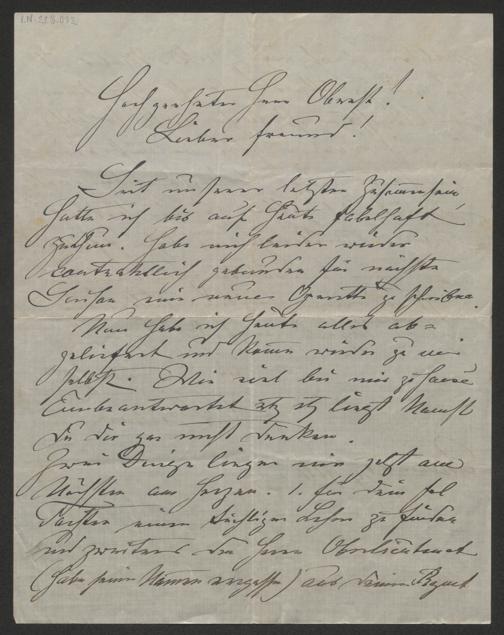 I.N. 228.072
Hochgeehrter Herr Oberst!
Lieber Freund!
Seit unserer letzten Zusammensein
hatte ich bis auf heute fabelhaft
zu thun. Habe mich leider wieder
contraktlich gebunden für nächste
Saison eine neue Operette zu schreiben.
Nun habe ich heute alles ab=
geliefert und komme wieder zu mir
selbst. Wie viel bei mir zu Hause
Unbeantwortet etz etz liegt kannst
du dir gar nicht denken.
Zwei Dinge liegen mir jetzt am
Nächsten am Herzen. 1. für dein Frl
Tochter einen tüchtigen Lehrer zu finden
und zweitens den Herrn Oberlieutenant
(habe seinen Namen vergessen) aus deinem